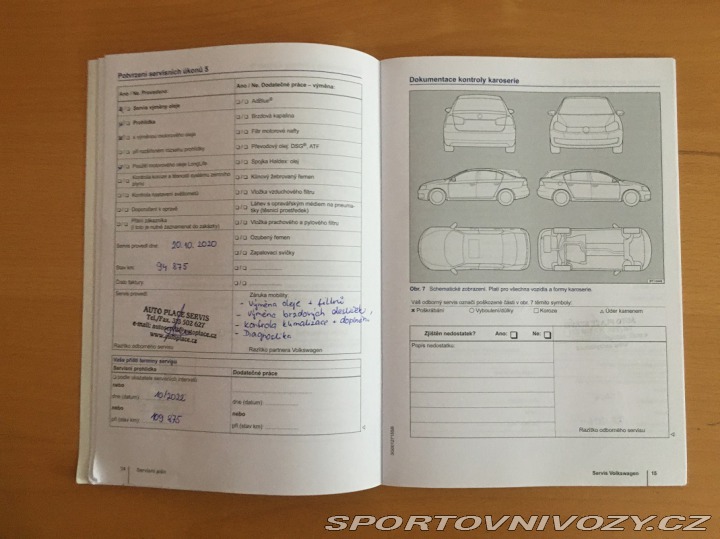 Potvrzení servisních úkonů 5
Ano / Ne. Provedeno:
Servis výměny oleje
Prohlídka
s výměnou motorového oleje
při rozšířeném rozsahu prohlídky
Použití motorového oleje LongLife
Doporučení k opravě
Přání zákazníka
Ano / Ne. Dodatečné práce – výměna:
AdBlue®
Brzdová kapalina
Filtr motorové nafty
Převodový olej: DSG®, ATF
Spojka Haldex: olej
Klínový žebrovaný řemen
Vložka vzduchového filtru
Láhev s opravářským médiem na pneuma-
tiky (těsnicí prostředek)
Vložka prachového a pylového filtru
Ozubený řemen
Zapalovací svíčky
Servis provedl dne: 20.10.2020
Stav km: 94 875
Číslo faktury
Servis provedl:
AUTO PLACE SERVIS
Razítko odborného servisu
Záruka mobility:
- Výměna oleje + filtrů
- Výměna brzdových destiček,
- kontrola klimatizace + doplnění
- Diagnostika
Razítko partnera Volkswagen
Vaše příští termíny servisu
Servisní prohlídka
nebo
dne (datum):
nebo
při (stav km): 109 875
Dodatečné práce
dne (datum):
nebo
při (stav km):
Servisní plán
Dokumentace kontroly karoserie
Obr. 7 Schematické zobrazení. Platí pro všechna vozidla a formy karoserie.
Váš odborný servis označí poškozené části v obr. 7 těmito symboly:
× Poškrábání ○ Vyboulení/důlky □ Koroze △ Úder kamenem
Zjištěn nedostatek? Ano: □ Ne: □
Popis nedostatku:
Razítko odborného servisu
Servis Volkswagen 15
SPORTOVNIVOZY.CZ